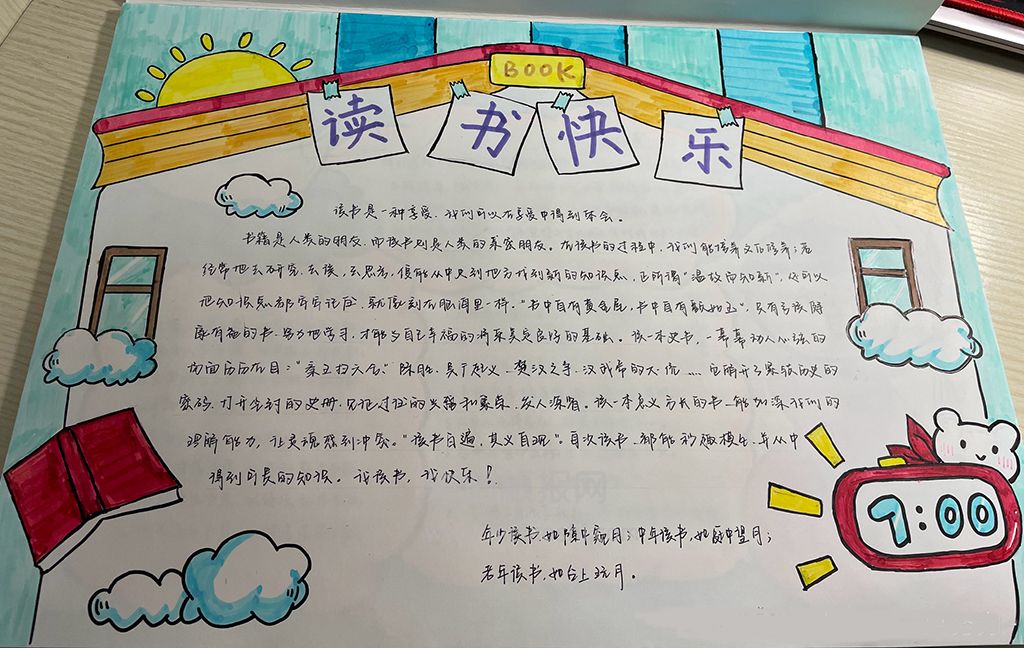 BOOK
读书快乐
读书是一种享受,我们可以在享受中得到体会。
书籍是人类的朋友,而读书则是人类的亲密朋友。在读书的过程中,我们能培养文化修养;若
经常地去研究,去读,去思考,便能从中只到地方找到新的知识点,正所谓“温故而知新”,你可以
把知识点都牢牢记住,就像刻在脑海里一样。“书中自有黄金屋,书中自有颜如玉”,只有多读健
康有益的书,努力地学习,才能为自己幸福的将来奠定良好的基础。读一本史书,一幕幕动人心弦的
场面历历在目:“秦王扫六合”陈胜、吴广起义、楚汉之争、汉武帝的大统……它解开了累积历史的
密码,打开尘封的史册,见证过往的兴盛和衰荣,发人深省。读一本意义方长的书,能加深我们的
理解能力,让灵魂感到冲突。“读书百遍,其义自现”。每次读书,都能
得到可贵的知识。我读书,我快乐!
年少读书,如隙中窥月;中年读书,如庭中望月;
老年读书,如台上玩月。
7:00